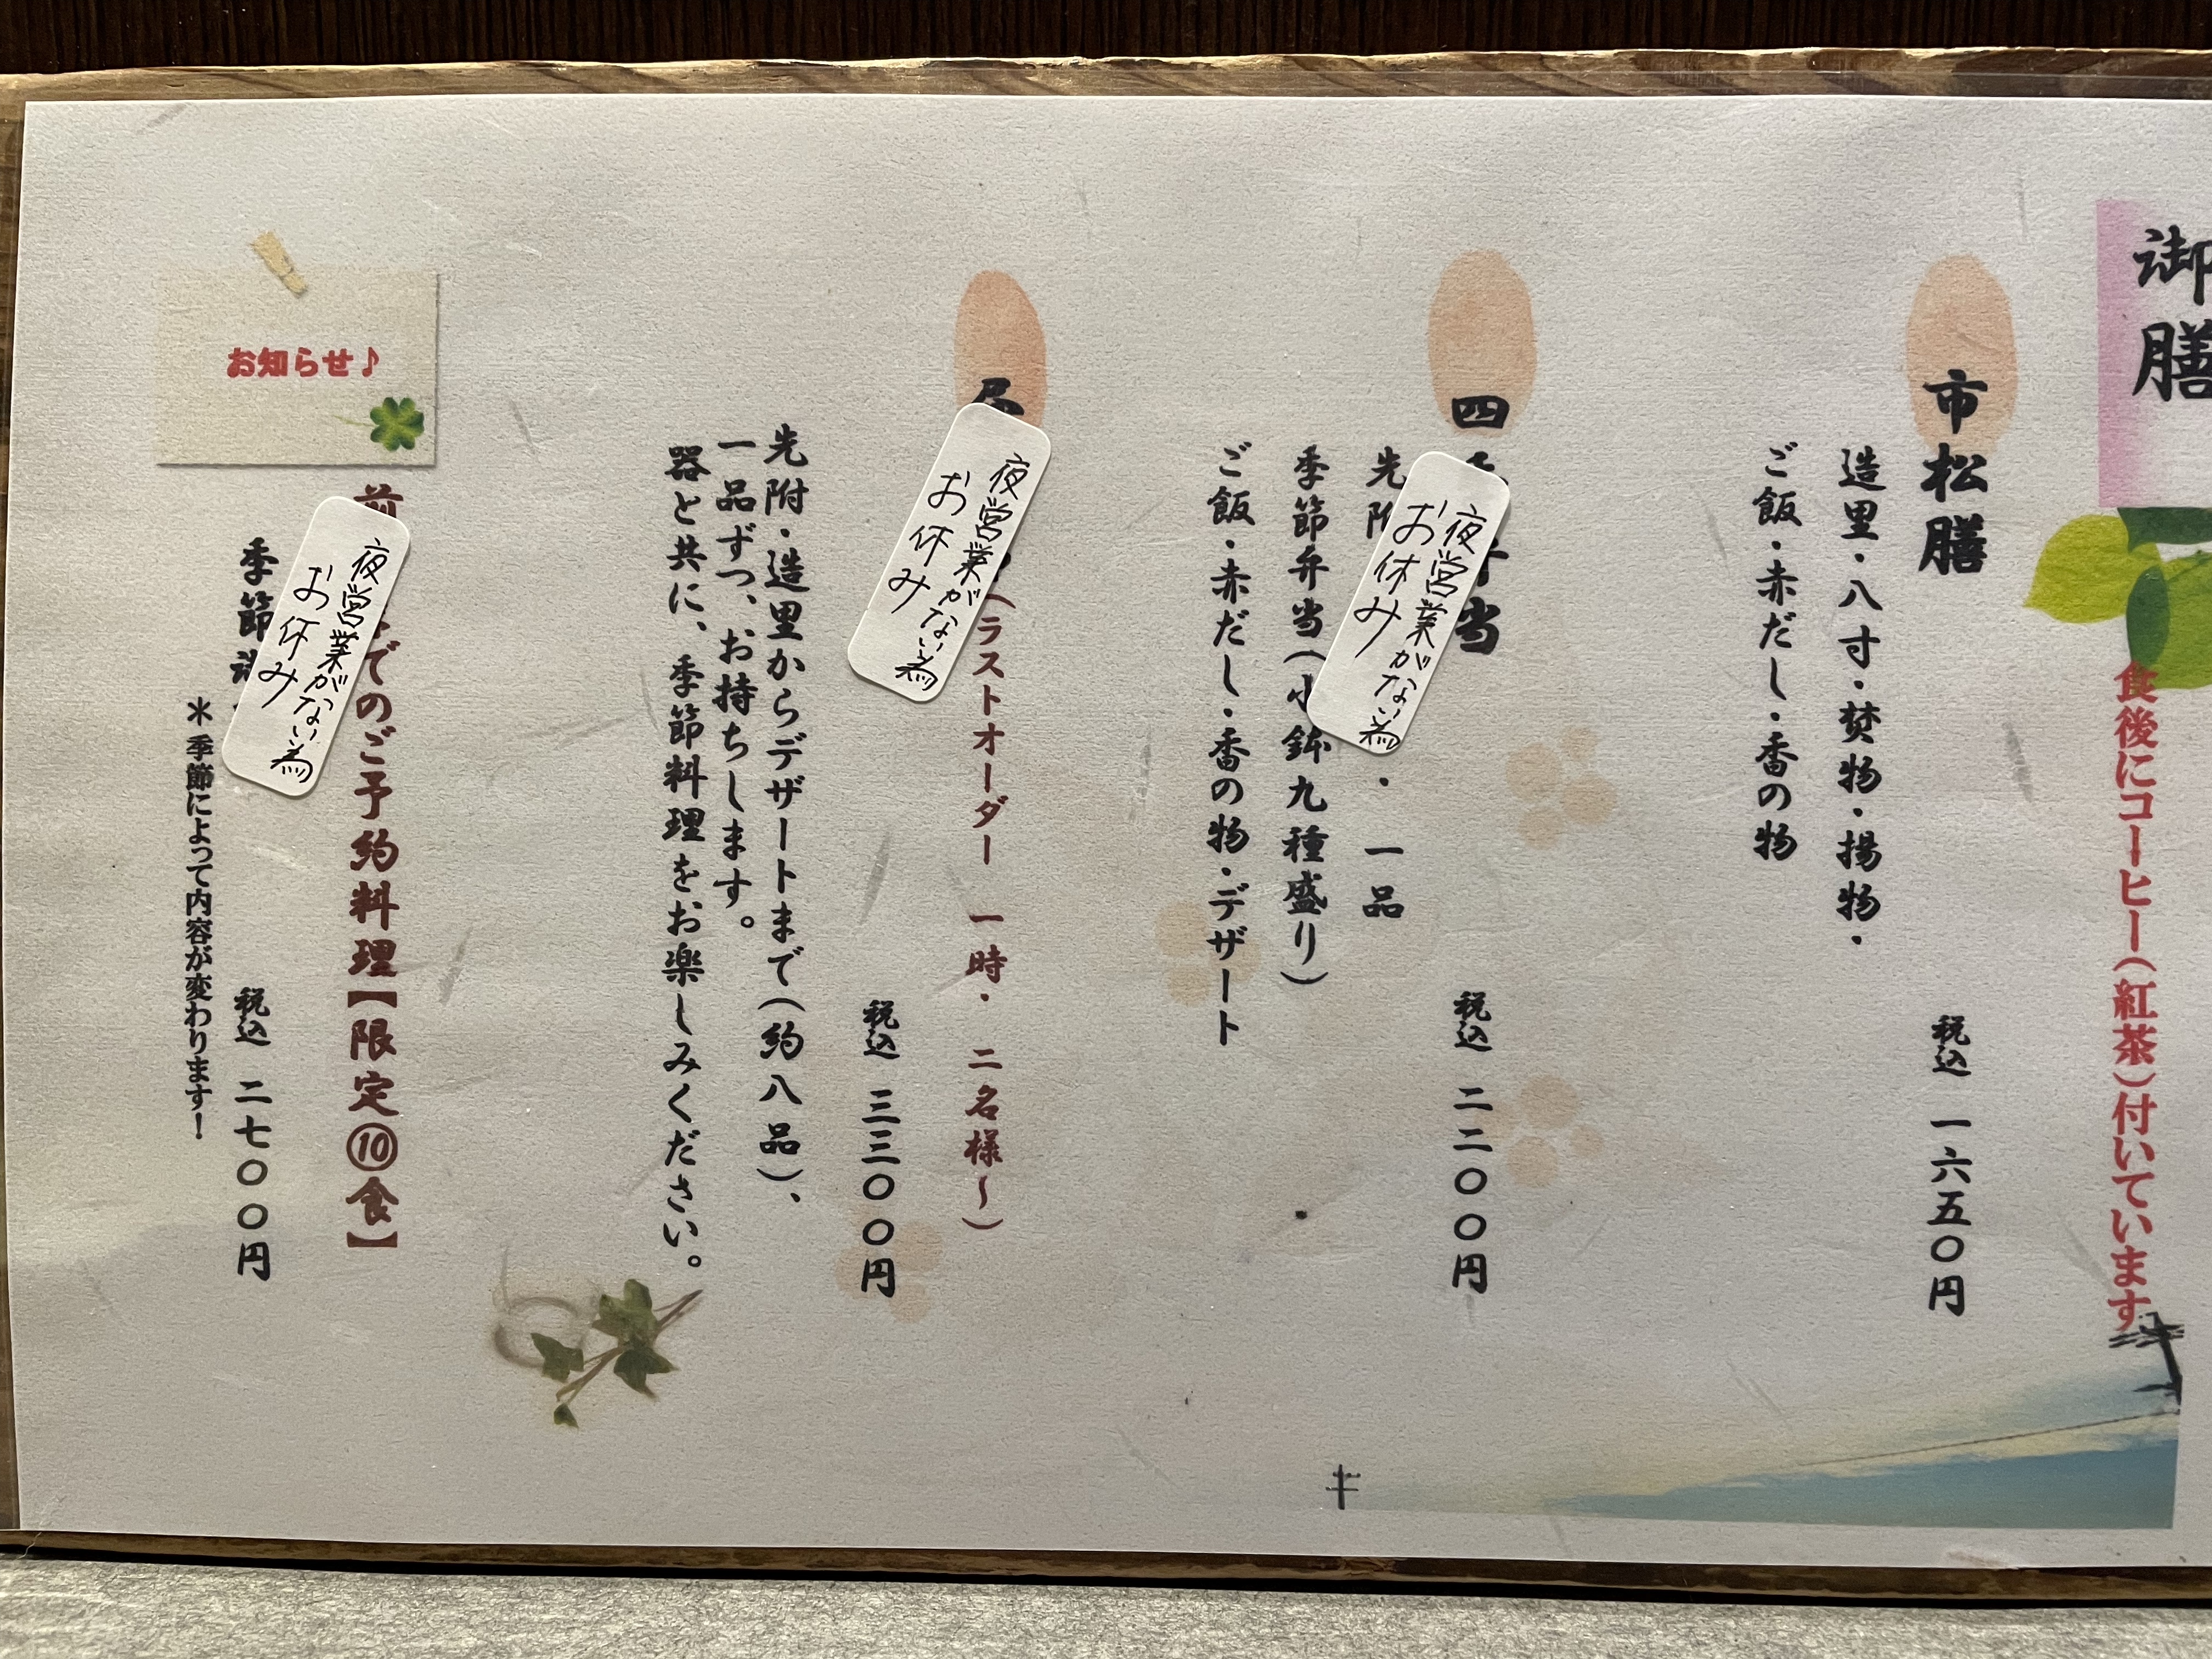 御膳
食後にコーヒー(紅茶)付いています
市松膳
造里・八寸・焚物・揚物・
ご飯・赤だし・香の物
税込 一六五〇円
四
当
先附
・一品
季節弁当(小鉢九種盛り)
ご飯・赤だし・香の物・デザート
税込 二二〇〇円
夜営業がない為
お休み
(ラストオーダー 一時・二名様~)
税込 三三〇〇円
先附・造里からデザートまで(約八品)、
一品ずつ、お持ちします。
器と共に、季節料理をお楽しみください。
夜営業がない為
お休み
お知らせ♪
前
でのご予約料理【限定⑩食】
季節
税込 二七〇〇円
*季節によって内容が変わります!
夜営業がない為
お休み